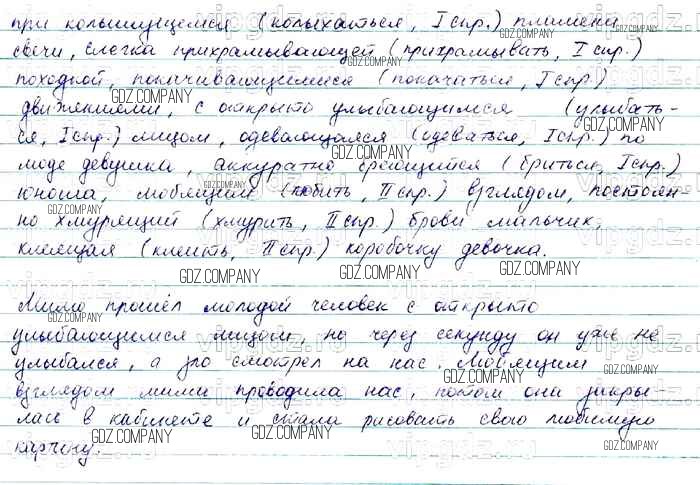 при колышущемся (колыхаться, I спр.) пламени
свечи, слегка прихрамывающей (прихрамывать, I спр.)
походкой, покачивающимися (покачаться, I спр.)
движениями, с открыто улыбающимся (улыбать-
ся, I спр.) лицом, одевающаяся (одеваться, I спр.) по
моде девушка, аккуратно бреющийся (бриться, I спр.)
юноша, любящим (любить, II спр.) взглядом, постоян-
но хмурящий (хмурить, II спр.) брови мальчик,
клеящая (клеить, II спр.) коробочку девочка.
Мимо прошёл молодой человек с открыто
улыбающимся лицом, но через секунду он уже не
улыбался, а зло смотрел на нас. Любящим
взглядом мили проводила нас, потом она закры
лась в кабинете и стала рисовать свою любимую
картину.
GDZ.COMPANY
vipgdz.ru